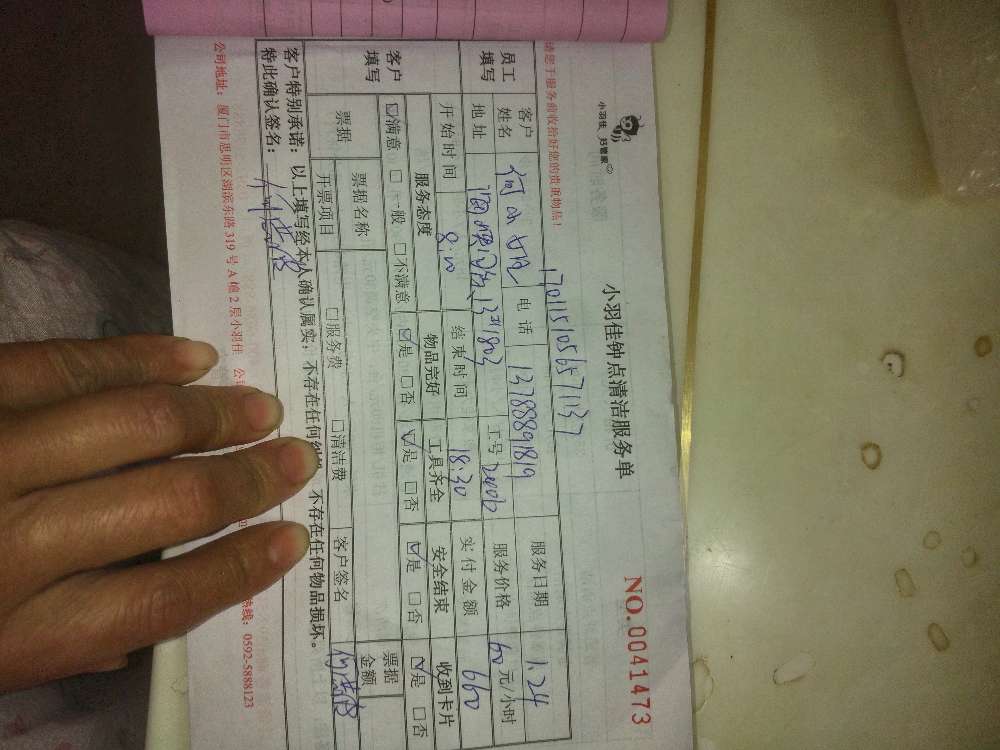 小羽佳 好管家
小羽佳钟点清洁服务单
NO.0041473
请您于服务前收拾好您的贵重物品！
1701151056571137
员工填写
客户姓名
电话 13788891819
服务日期 1.24
地址
工号
服务价格 60元/小时
开始时间 8:00
结束时间 18:30
实付金额 660
客户填写
服务态度 物品完好 工具齐全 安全结束 收到卡片
☑满意 □一般 □不满意 ☑是 □否 ☑是 □否 ☑是 □否 ☑是 □否
票据 票据名称 票据金额
开票项目 □服务费 □清洁费 客户签名
客户特别承诺：以上填写经本人确认属实，不存在任何 不存在任何物品损坏。
特此确认签名：
公司地址：厦门市思明区湖滨东路319号A幢2层小羽佳 热线：0592-5888123